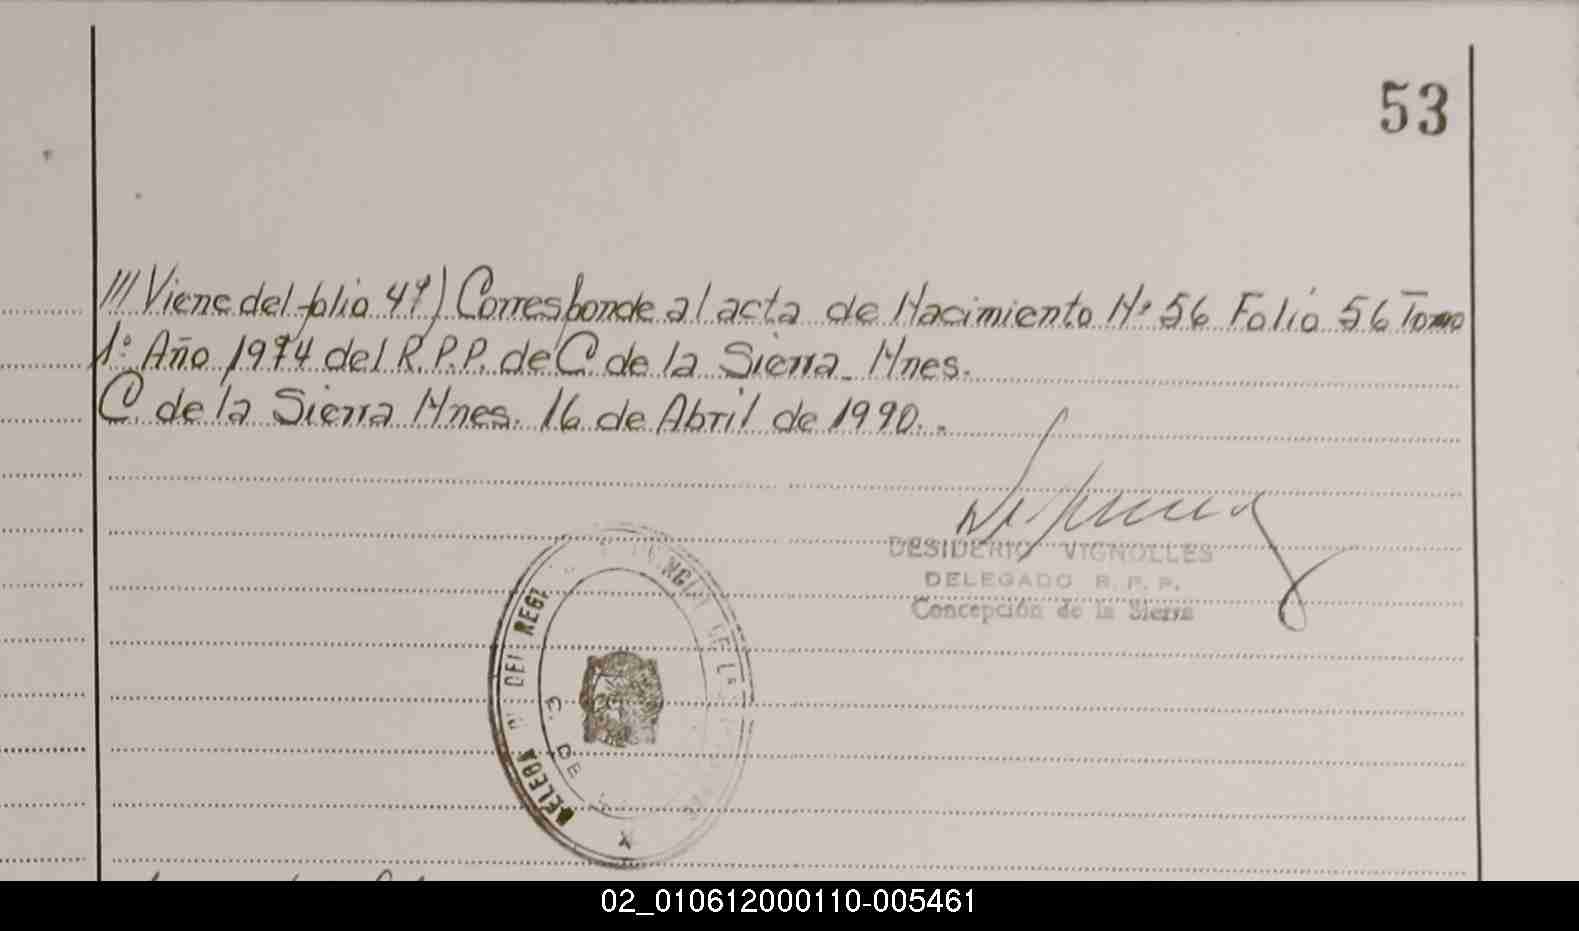 53
/// Viene del folio 47) Corresponde al acta de Nacimiento Nº 56 Folio 56 Tomo
1º Año 1974 del R.P.P. de C. de la Sierra - Mnes.
C. de la Sierra Mnes. 16 de Abril de 1990..
DESIDERIO VIGNOLLES
DELEGADO R. P. P.
Concepción de la Sierra
DEL REGI
C. DE
DE LA
02_010612000110-005461